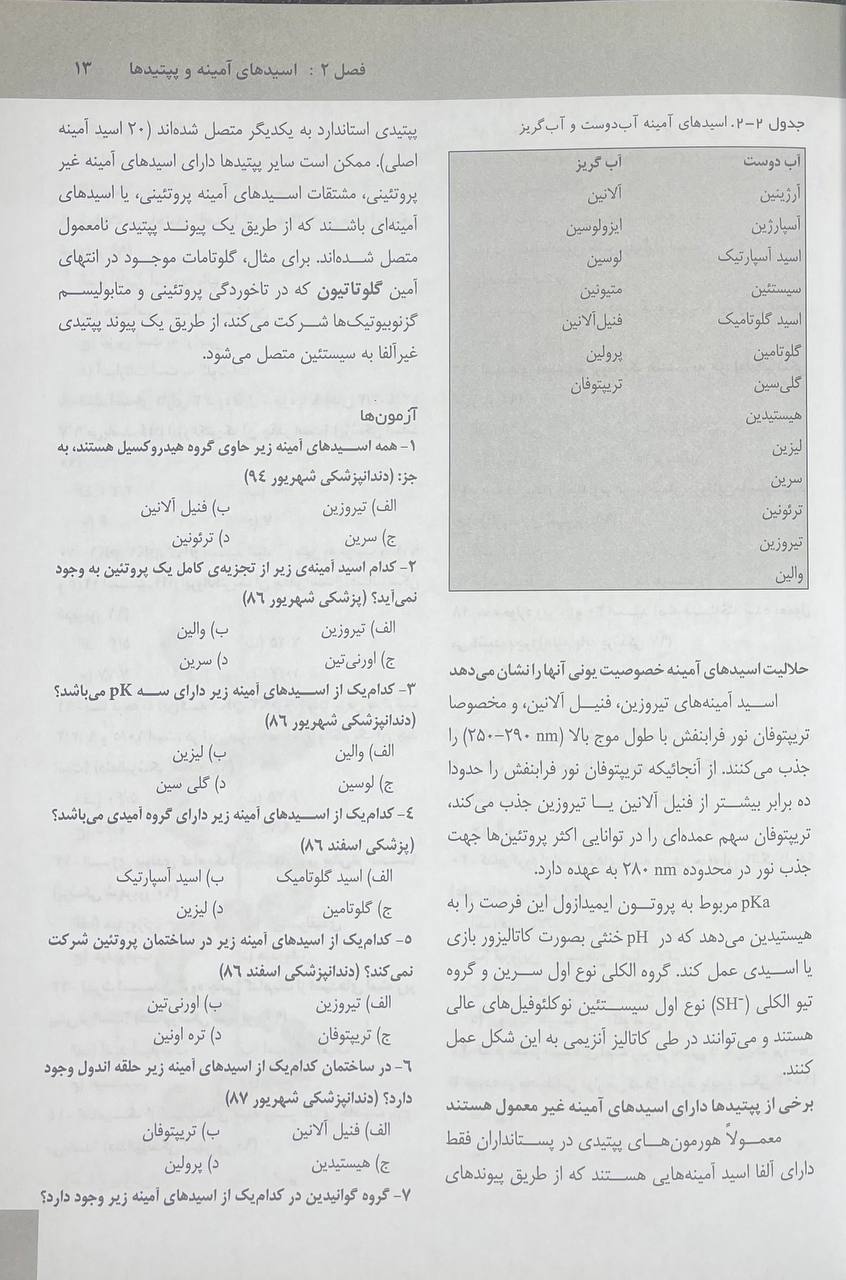 فصل ۲ : اسیدهای آمینه و پپتیدها ۱۳
جدول ۲-۲. اسیدهای آمینه آب‌دوست و آب‌گریز
آب دوست آب گریز
آرژینین آلانین
آسپارژین ایزولوسین
اسید آسپارتیک لوسین
سیستئین متیونین
اسید گلوتامیک فنیل‌آلانین
گلوتامین پرولین
گلی‌سین تریپتوفان
هیستیدین
لیزین
سرین
ترئونین
تیروزین
والین
حلالیت اسیدهای آمینه خصوصیت یونی آنها را نشان می‌دهد
اسید آمینه‌های تیروزین، فنیل آلانین، و مخصوصا
تریپتوفان نور فرابنفش با طول موج بالا (۲۵۰-۲۹۰ nm) را
جذب می‌کنند. از آنجائیکه تریپتوفان نور فرابنفش را حدودا
ده برابر بیشتر از فنیل آلانین یا تیروزین جذب می‌کند،
تریپتوفان سهم عمده‌ای را در توانایی اکثر پروتئین‌ها جهت
جذب نور در محدوده ۲۸۰ nm به عهده دارد.
pKa مربوط به پروتون ایمیدازول این فرصت را به
هیستیدین می‌دهد که در pH خنثی بصورت کاتالیزور بازی
یا اسیدی عمل کند. گروه الکلی نوع اول سرین و گروه
تیو الکلی (SH⁻) نوع اول سیستئین نوکلئوفیل‌های عالی
هستند و می‌توانند در طی کاتالیز آنزیمی به این شکل عمل
کنند.
برخی از پپتیدها دارای اسیدهای آمینه غیر معمول هستند
معمولاً هورمون‌های پپتیدی در پستانداران فقط
دارای آلفا اسید آمینه‌هایی هستند که از طریق پیوندهای
پپتیدی استاندارد به یکدیگر متصل شده‌اند (۲۰ اسید آمینه
اصلی). ممکن است سایر پپتیدها دارای اسیدهای آمینه غیر
پروتئینی، مشتقات اسیدهای آمینه پروتئینی، یا اسیدهای
آمینه‌ای باشند که از طریق یک پیوند پپتیدی نامعمول
متصل شده‌اند. برای مثال، گلوتامات موجود در انتهای
آمین گلوتاتیون که در تاخوردگی پروتئینی و متابولیسم
گزنوبیوتیک‌ها شرکت می‌کند، از طریق یک پیوند پپتیدی
غیرآلفا به سیستئین متصل می‌شود.
آزمون‌ها
۱- همه اسیدهای آمینه زیر حاوی گروه هیدروکسیل هستند، به
جز: (دندانپزشکی شهریور ۹۴)
الف) تیروزین ب) فنیل آلانین
ج) سرین د) ترئونین
۲- کدام اسید آمینه‌ی زیر از تجزیه‌ی کامل یک پروتئین به وجود
نمی‌آید؟ (پزشکی شهریور ۸۶)
الف) تیروزین ب) والین
ج) اورنی‌تین د) سرین
۳- کدام‌یک از اسیدهای آمینه زیر دارای سه pK می‌باشد؟
(دندانپزشکی شهریور ۸۶)
الف) والین ب) لیزین
ج) لوسین د) گلی سین
۴- کدام‌یک از اسیدهای آمینه زیر دارای گروه آمیدی می‌باشد؟
(پزشکی اسفند ۸۶)
الف) اسید گلوتامیک ب) اسید آسپارتیک
ج) گلوتامین د) لیزین
۵- کدام‌یک از اسیدهای آمینه زیر در ساختمان پروتئین شرکت
نمی‌کند؟ (دندانپزشکی اسفند ۸۶)
الف) تیروزین ب) اورنی‌تین
ج) تریپتوفان د) تره اونین
۶- در ساختمان کدام‌یک از اسیدهای آمینه زیر حلقه اندول وجود
دارد؟ (دندانپزشکی شهریور ۸۷)
الف) فنیل آلانین ب) تریپتوفان
ج) هیستیدین د) پرولین
۷- گروه گوانیدین در کدام‌یک از اسیدهای آمینه زیر وجود دارد؟